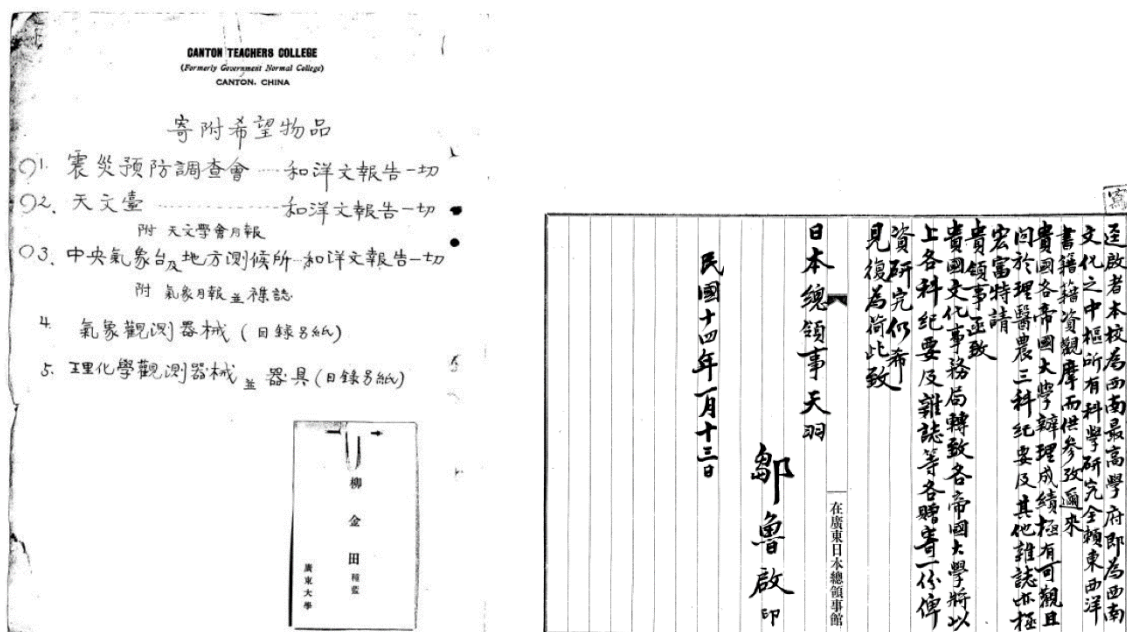 CANTON TEACHERS COLLEGE
(Formerly Government Normal College)
CANTON, CHINA
寄附希望物品
1. 震災預防調查會……和洋文報告一切
2. 天文臺……………和洋文報告一切
附 天文學會月報
3. 中央氣象台及地方測候所…和洋文報告一切
附 氣象月報並雜誌
4. 氣象觀測器械(目錄另紙)
5. 理化學觀測器械並器具(目錄另紙)
柳金田
廣東大學
寫
逕啟者本校為西南最高學府即為西南
文化之中樞所有科學研究全賴東西洋
書籍藉資觀摩而供參攷邇來
貴國各帝國大學辦理成績極有可觀且
同於理醫農三科紀要及其他雜誌亦極
宏富特請
貴領事函致
貴國文化事務局轉致各帝國大學將以
上各科紀要及雜誌等各贈寄一份俾
資研究仍希
見復為荷此致
日本總領事天羽
鄒魯啟印
民國十四年一月十三日
在廣東日本總領事館